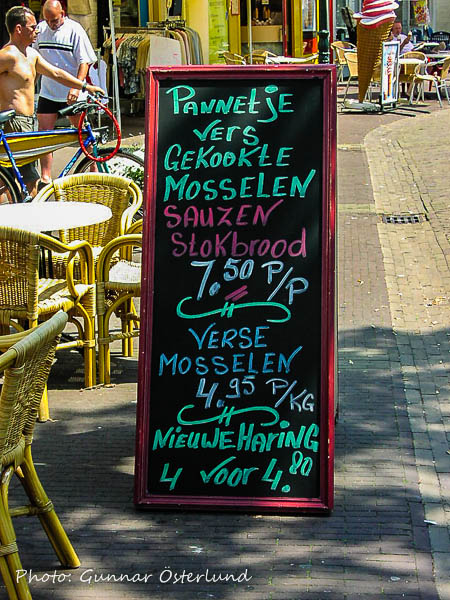 Pannetje
vers
Gekookte
Mosselen
Sauzen
Stokbrood
7.50 P/P
Verse
Mosselen
4.95 P/KG
Nieuwe Haring
4 voor 4.80
Photo: Gunnar Österlund